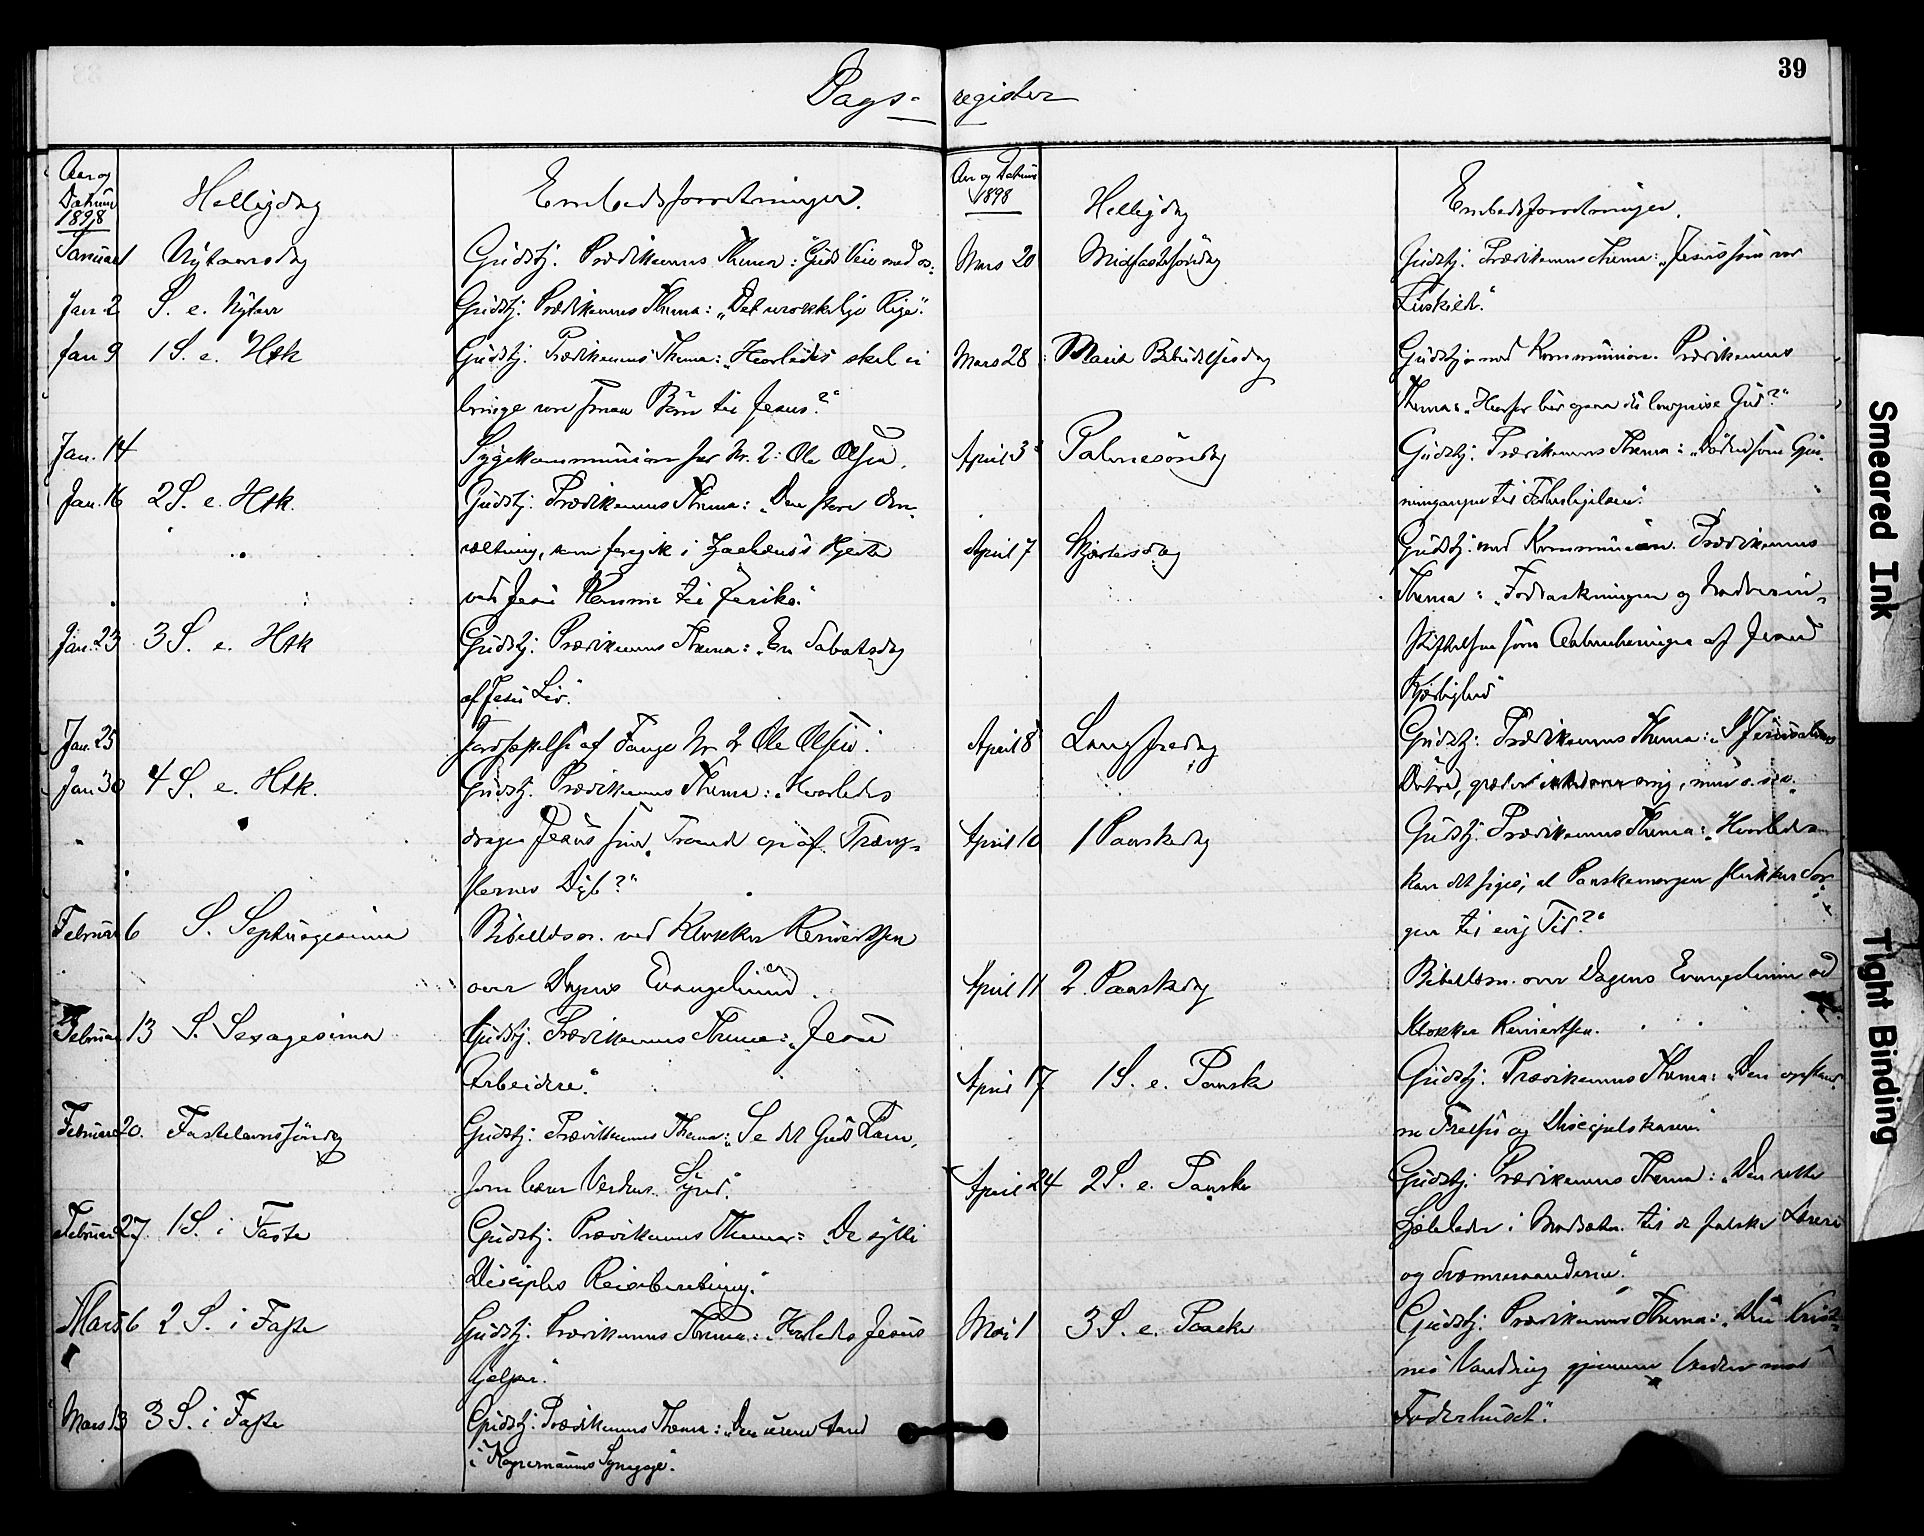 39
Dags-register
Aar og
Datum
1898
Helligdag
Embedsforretninger.
Januar 1 Nytaarsdag Gudstj. Prædikenens Thema: "Guds Veie med os."
Jan. 2 S. e. Nytaar Gudstj. Prædikenens Thema: "Det urokkelige Rige."
Jan 9 1 S. e. H3k Gudstj. Prædikenens Thema: "Hvorledes skal vi
bringe vore smaa Børn til Jesus?"
Jan. 14 Sygekommunion for Nr. 2: Ole Olsen.
Jan. 16 2 S. e. H3k. Gudstj. Prædikenens Thema: "Den store Om-
væltning, som foregik i Zachæus's Hjerte
ved Jesu Komme til Jeriko."
Jan. 23 3 S. e. H3k Gudstj. Prædikenens Thema: "En Sabatsdag
af Jesu Liv."
Jan. 25 Jordfæstelse af Fange Nr 2 Ole Olsen.
Jan 30 4 S. e. H3k. Gudstj. Prædikenens Thema: "Hvorledes
drager Jesus sine Troende op af Træng-
slernes Dyb?"
Februar 6 S. Septuagesima Bibellæsn. ved Klokker Reinertsen
over Dagens Evangelium.
Februar 13 S. Sexagesima Gudstj. Prædikenens Thema: "Jesu
Arbeidere."
Februar 20. Fastelavnssøndag Gudstj. Prædikenens Thema: "Se det Guds Lam,
som bærer Verdens Synd."
Februar 27. 1 S. i Faste Gudstj. Prædikenens Thema: "De sytti
Disciples Reiseberetning."
Mars 6 2 S. i Faste Gudstj. Prædikenens Thema: "Hvorledes Jesus
hjelper."
Mars 13 3 S. i Faste Gudstj. Prædikenens Thema: "Den urene Aand
i Kapernaums Synagoge."
Aar og Datum
1898
Helligdag
Embedsforretninger.
Mars 20 Midfastesøndag Gudstj. Prædikenens Thema: "Jesus som vor
Livskilde."
Mars 28: Mariæ Bebudelsesdag Gudstj. med Kommunion. Prædikenens
Thema: "Hvorfor bør ogsaa du lovprise Gud?"
April 3 Palmesøndag Gudstj. Prædikenens Thema: "Døden som Gjen-
nemgangen til Forherligelsen."
April 7 Skjærtorsdag Gudstj. med Kommunion. Prædikenens
Thema: "Fodtvætningen og Nadverind-
stiftelsen som Aabenbaringer af Jesu
Kjærlighed"
April 8 Langfredag Gudstj. Prædikenens Thema: "I Jerusalems
Døtre, græder ikke over mig, men o. s. v."
April 10 1 Paaskedag Gudstj. Prædikenens Thema: "Hvorledes
kan det siges, at Paaskemorgen slukker Sor-
gen til evig Tid?"
April 11 2. Paaskedag Bibellæsn. over Dagens Evangelium ved
Klokker Reinertsen.
April 17 1 S. e. Paaske Gudstj. Prædikenens Thema: "Den opstand-
ne Frelser og Discipelskaren."
April 24 2 S. e. Paaske Gudstj. Prædikenens Thema: "Den rette
Sjæleleder i Modsætn. til de falske Lærere
og Sværmeraanderne."
Mai 1 3 S. e. Paaske Gudstj. Prædikenens Thema: "Den Krist-
nes Vandring gjennem Verden mod
Faderhuset."
Smeared Ink
Tight Binding